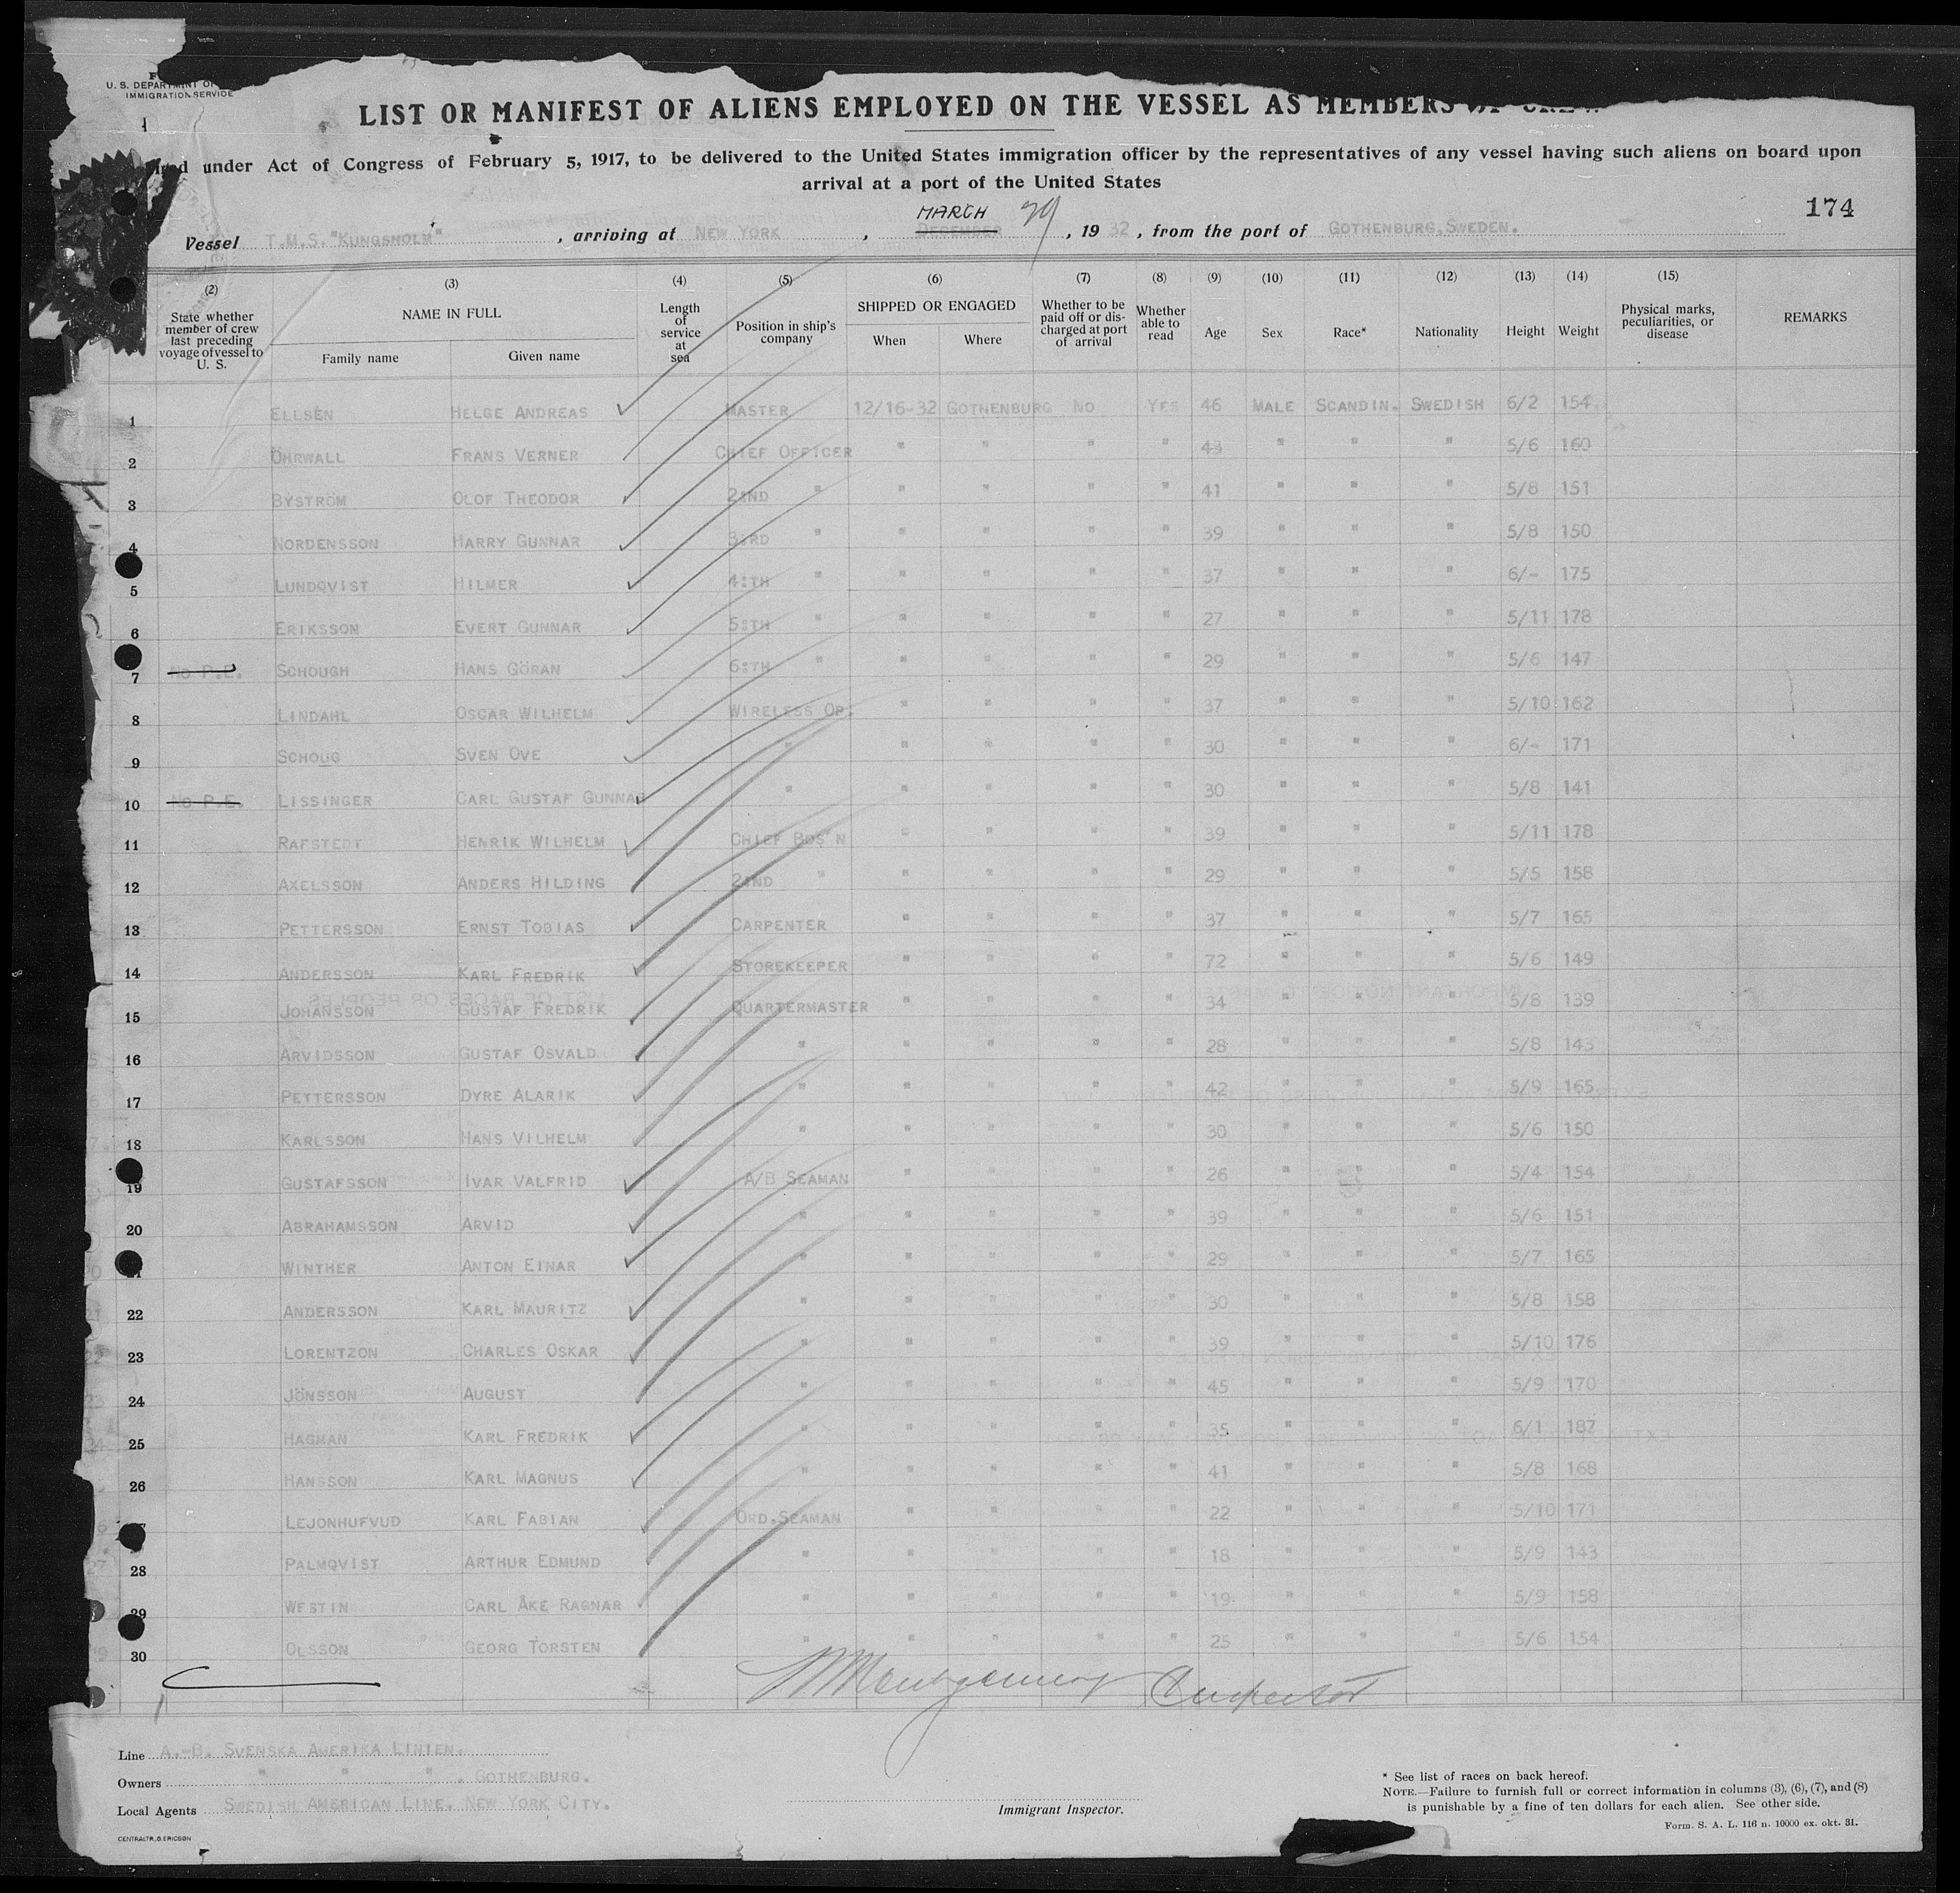 U. S. DEPARTMENT OF
IMMIGRATION SERVICE
LIST OR MANIFEST OF ALIENS EMPLOYED ON THE VESSEL AS MEMBERS OF CREW
under Act of Congress of February 5, 1917, to be delivered to the United States immigration officer by the representatives of any vessel having such aliens on board upon
arrival at a port of the United States
174
Vessel T.M.S. "KUNGSHOLM", arriving at NEW YORK, DECEMBER MARCH 29, 1932, from the port of GOTHENBURG, SWEDEN.
(2) (3) (4) (5) (6) (7) (8) (9) (10) (11) (12) (13) (14) (15)
State whether member of crew last preceding voyage of vessel to U. S. NAME IN FULL Family name Given name Length of service at sea Position in ship's company SHIPPED OR ENGAGED When Where Whether to be paid off or discharged at port of arrival Whether able to read Age Sex Race* Nationality Height Weight Physical marks, peculiarities, or disease REMARKS
1 ELLSÉN HELGE ANDREAS MASTER 12/16-32 GOTHENBURG NO YES 46 MALE SCANDIN. SWEDISH 6/2 154
2 ÖHRWALL FRANS VERNER CHIEF OFFICER " " " " 43 " " " 5/6 160
3 BYSTRÖM OLOF THEODOR 2:ND " " " " " 41 " " " 5/8 151
4 NORDENSSON HARRY GUNNAR 3:RD " " " " " 39 " " " 5/8 150
5 LUNDQVIST HILMER 4:TH " " " " " 37 " " " 6/- 175
6 ERIKSSON EVERT GUNNAR 5:TH " " " " " 27 " " " 5/11 178
7 NO P.E. SCHOUGH HANS GÖRAN 6:TH " " " " " 29 " " " 5/6 147
8 LINDAHL OSCAR WILHELM WIRELESS OP. " " " " 37 " " " 5/10 162
9 SCHOUG SVEN OVE " " " " " 30 " " " 6/- 171
10 NO P.E. LISSINGER CARL GUSTAF GUNNAR " " " " " 30 " " " 5/8 141
11 RAFSTEDT HENRIK WILHELM CHIEF BOS'N " " " " 39 " " " 5/11 178
12 AXELSSON ANDERS HILDING 2:ND " " " " " 29 " " " 5/5 158
13 PETTERSSON ERNST TOBIAS CARPENTER " " " " 37 " " " 5/7 165
14 ANDERSSON KARL FREDRIK STOREKEEPER " " " " 72 " " " 5/6 149
15 JOHANSSON GUSTAF FREDRIK QUARTERMASTER " " " " 34 " " " 5/8 139
16 ARVIDSSON GUSTAF OSVALD " " " " " 28 " " " 5/8 143
17 PETTERSSON DYRE ALARIK " " " " " 42 " " " 5/9 165
18 KARLSSON HANS VILHELM " " " " " 30 " " " 5/6 150
19 GUSTAFSSON IVAR VALFRID A/B SEAMAN " " " " 26 " " " 5/4 154
20 ABRAHAMSSON ARVID " " " " " 39 " " " 5/6 151
21 WINTHER ANTON EINAR " " " " " 29 " " " 5/7 165
22 ANDERSSON KARL MAURITZ " " " " " 30 " " " 5/8 158
23 LORENTZON CHARLES OSKAR " " " " " 39 " " " 5/10 176
24 JÖNSSON AUGUST " " " " " 45 " " " 5/9 170
25 HAGMAN KARL FREDRIK " " " " " 35 " " " 6/1 187
26 HANSSON KARL MAGNUS " " " " " 41 " " " 5/8 168
LEJONHUFVUD KARL FABIAN ORD. SEAMAN " " " " 22 " " " 5/10 171
28 PALMQVIST ARTHUR EDMUND " " " " " 18 " " " 5/9 143
29 WESTIN CARL ÅKE RAGNAR " " " " " 19 " " " 5/9 158
30 OLSSON GEORG TORSTEN " " " " " 25 " " " 5/6 154
Montgomery Inspector
Line A.-B. SVENSKA AMERIKA LINIEN.
Owners " " " . GOTHENBURG.
Local Agents SWEDISH AMERICAN LINE, NEW YORK CITY.
CENTRALTR. G. ERICSON
Immigrant Inspector.
* See list of races on back hereof.
NOTE.—Failure to furnish full or correct information in columns (3), (6), (7), and (8)
is punishable by a fine of ten dollars for each alien. See other side.
Form. S. A. L. 116 n. 10000 ex. okt. 31.